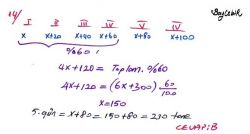 Baycebik
14/
I II III IV V IV
x x+20 x+40 x+60 x+80 x+100
%60 ı
4x+120 = Toplam. %60
4x+120 = (6x+300) . 60/100
x=150
5.gün = x+80 = 150+80 = 230 tane
CEVAP:B